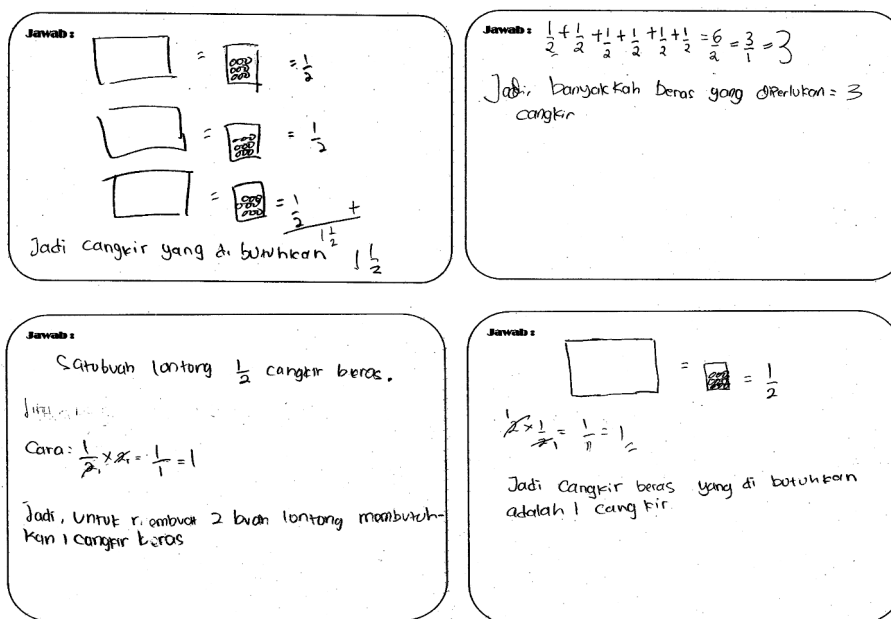 Jawab:
= = 1/2
= = 1/2
= = 1/2 +
1 1/2
Jadi cangkir yang di butuhkan 1 1/2
Jawab: 1/2 + 1/2 + 1/2 + 1/2 + 1/2 + 1/2 = 6/2 = 3/1 = 3
Jadi, banyakkah beras yang diperlukan = 3
cangkir
Jawab:
Satubuah lontong 1/2 cangkir beras.
Cara: 1/2 1 × 2 1 = 1/1 = 1
Jadi, untuk membuat 2 buah lontong mambutuh-
kan 1 cangkir beras
Jawab:
= = 1/2
1 2 × 1/2 1 = 1/1 = 1
Jadi cangkir beras yang di butuhkan
adalah 1 cangkir